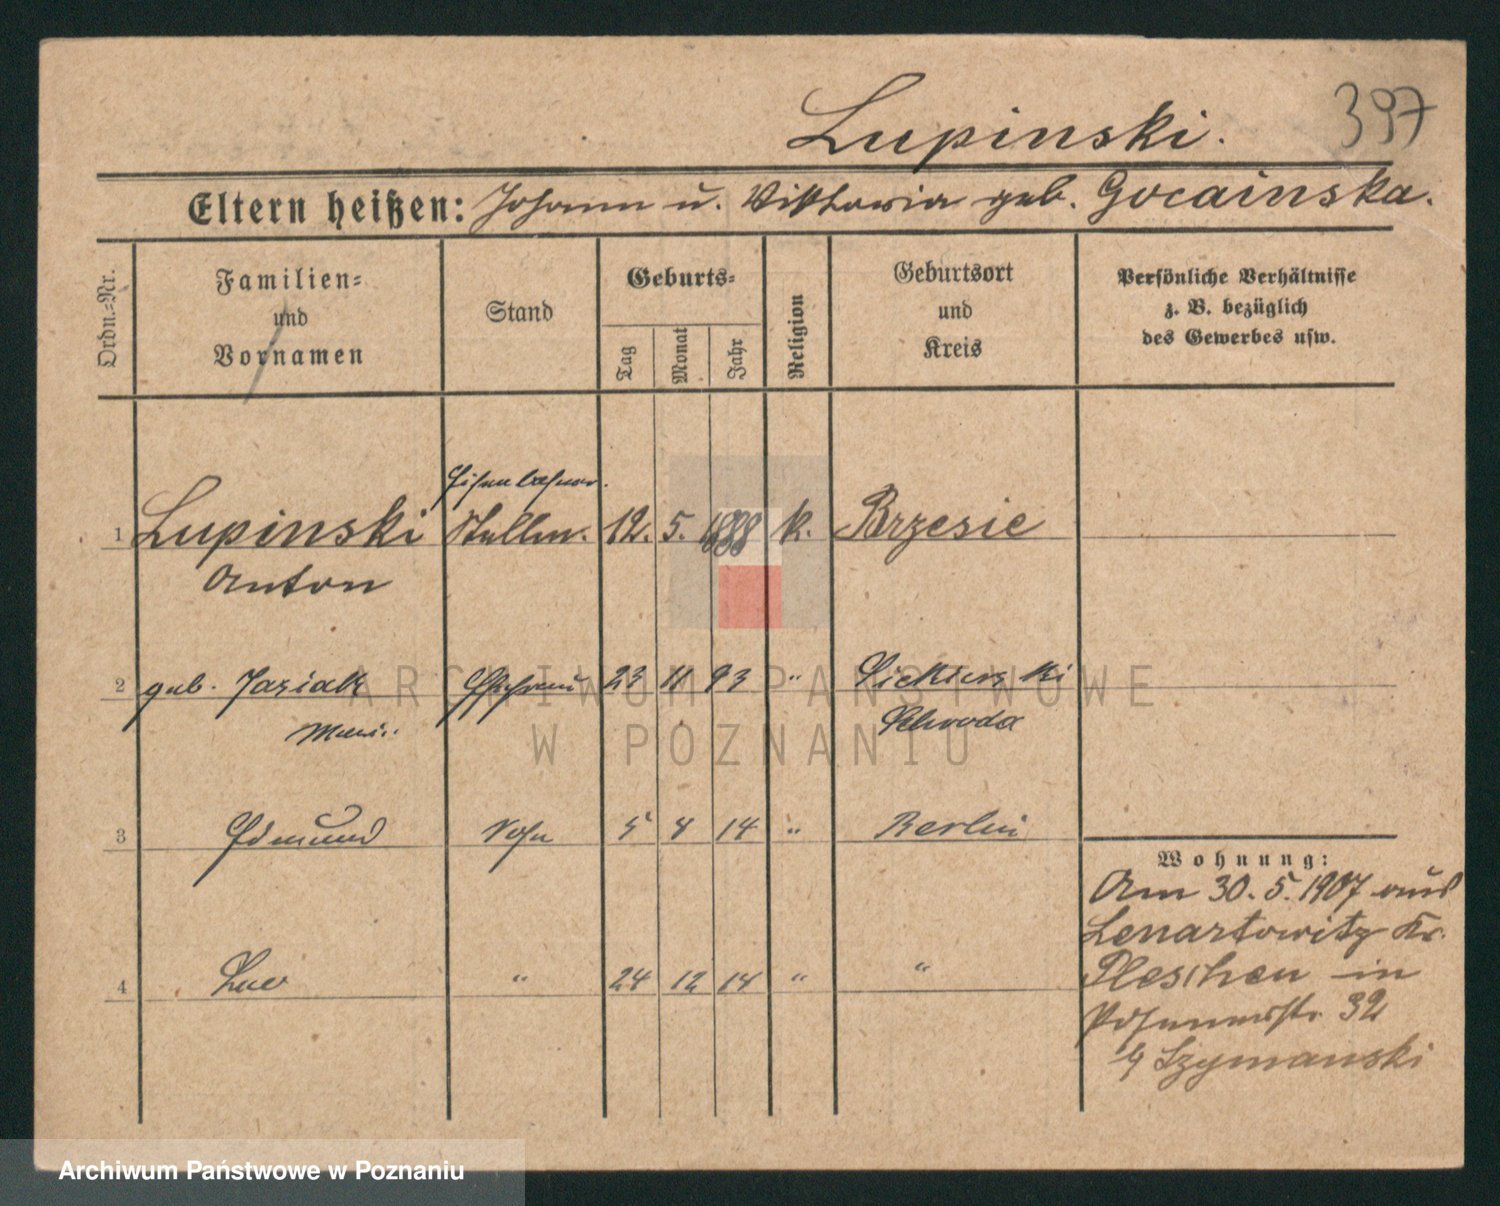 397
Lupinski.
Eltern heißen: Johann u. Viktoria geb. Gocainska.
Ordn.-Nr.
Familien-
und
Vornamen
Stand
Geburts-
Tag
Monat
Jahr
Religion
Geburtsort
und
Kreis
Persönliche Verhältnisse
z. B. bezüglich
des Gewerbes usw.
Eisenbahner.
1 Lupinski Stellm. 12. 5. 1888 k. Brzesie
Anton
2 geb. Jaziak Ehefrau 23 11 93 "
Schroda
3 Edmund Sohn 5 4 14 " Berlin
4 " 24 12 14 " "
Wohnung:
Am 30. 5. 1907 aus
Lenartowitz Kr.
Pleschen in
Posenerstr. 32
b/ Szymanski
ARCHIWUM PAŃSTWOWE
W POZNANIU
Archiwum Państwowe w Poznaniu